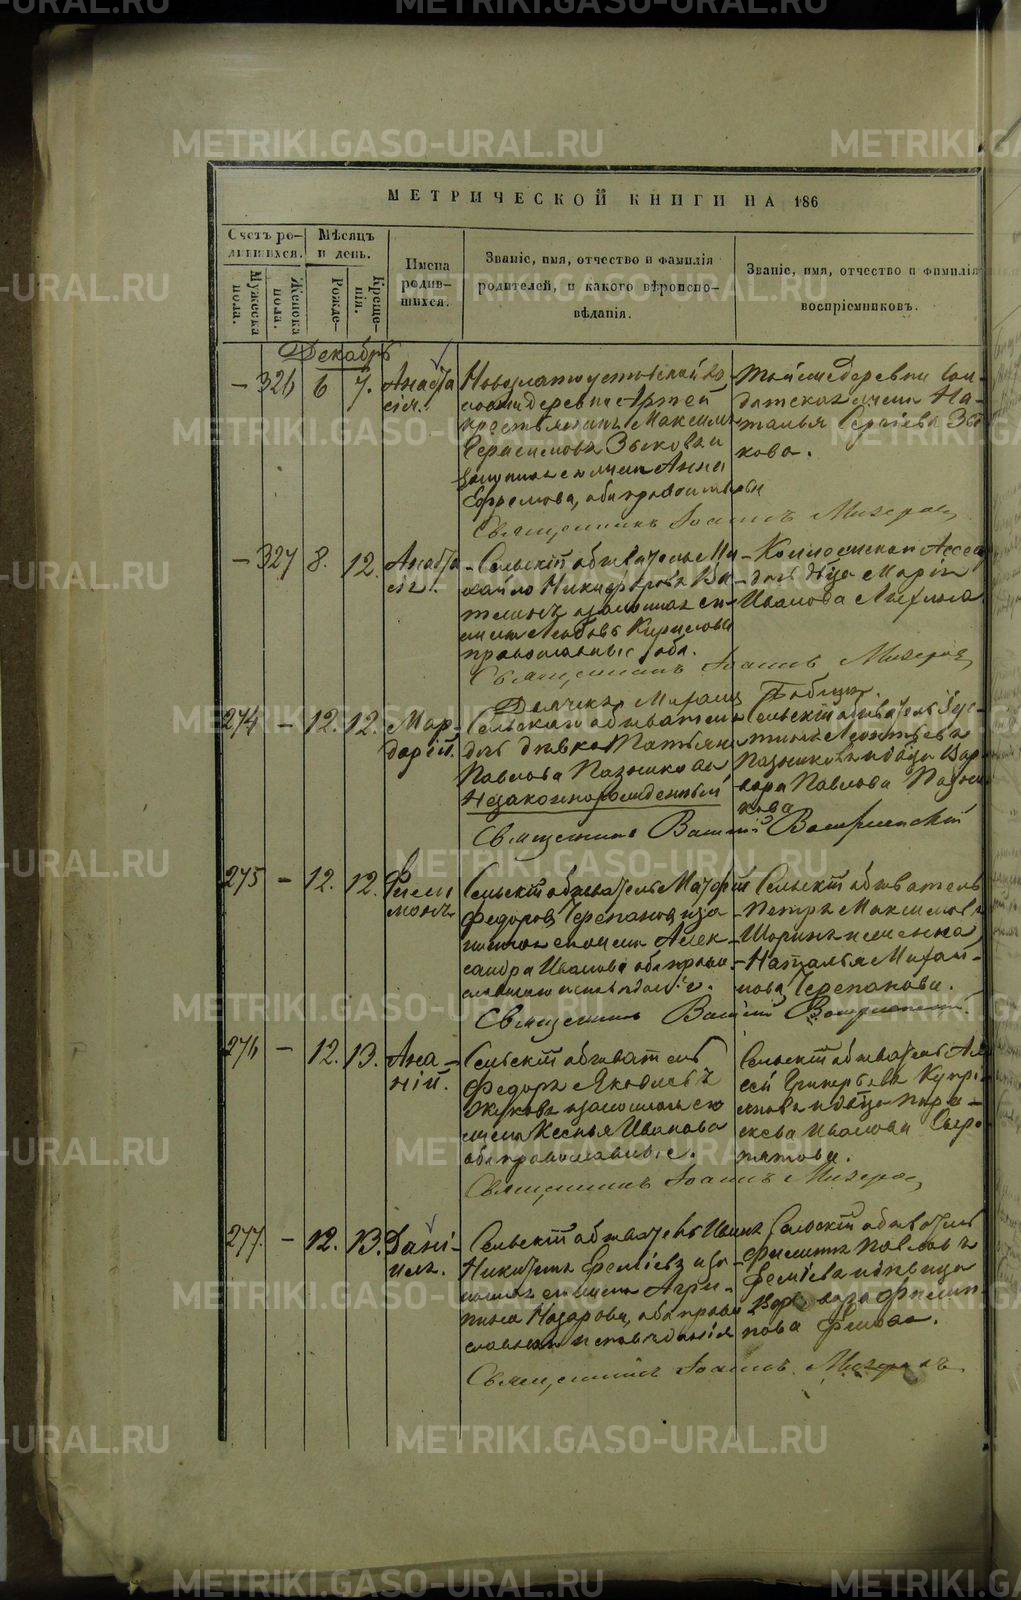 МЕТРИЧЕСКОЙ КНИГИ НА 186
Счетъ ро-
дившихся.
Мужеска
пола.
Женска
пола.
Мѣсяцъ
и день.
Рожде-
Креще-
нія.
Имена
родив-
шихся.
Званіе, имя, отчество и фамилія
родителей, и какого вѣроиспо-
вѣданія.
Званіе, имя, отчество и фамилія
воспріемниковъ.
Декабрь
– 326 6 7. Анаста
сія.
Новозлатоустовской во
лости деревни Артей
крестьянинъ Максимъ
Герасимовъ Зыковъ и
законная его жена Анна
Ефремова, оба православныи
Той же деревни сол-
датская жена На-
талья Сергіева Зы
кова.
Священникъ Іоаннъ
– 327 8. 12. Анаста
сія.
Сельскій обыватель Ми
хайло Никифоровъ
законная его
жена Любовь Кирилова
православные оба.
дѣвица Марія
Иванова
Священникъ Іоаннъ
274 – 12. 12. Мар-
дарій.
Сельскаго обывателя
дочь дѣвка Татьяна
Павлова
Незаконнорожденный
Сельскій обыватель Іус-
тинъ Леонтьевъ
и дѣвица Вар-
вара Павлова
кова
Священникъ Василій
275 – 12. 12. Фили
монъ
Сельскій обыватель Матфій
Федоровъ Черепановъ и за
конная его жена Алек
сандра Иванова оба право
славнаго исповѣданія.
Сельскій обыватель
Петръ Максимовъ
Шоринъ и женка
Наталья Михай-
лова Черепанова.
Священникъ Василій
276 – 12. 13. Ана-
ній.
Сельскій обыватель
Федоръ Яковлевъ
Жуковъ и законная его
жена Ксенья Иванова
оба православные.
Сельскій обыватель Але
сей Григорьевъ Купрі
яновъ и дѣвица Пара-
скева Иванова Сыро
пятова.
Священникъ Іоаннъ
277. – 12. 13. Дані-
илъ.
Сельскій обыватель Иванъ
Никитинъ и за-
конная его жена Агри-
пина Назарова, оба право
славнаго исповѣданія
Сельскій обыватель
Филиппъ Павловъ
и дѣвица
Варвара Филип-
пова
Священникъ Іоаннъ
METRIKI.GASO-URAL.RU